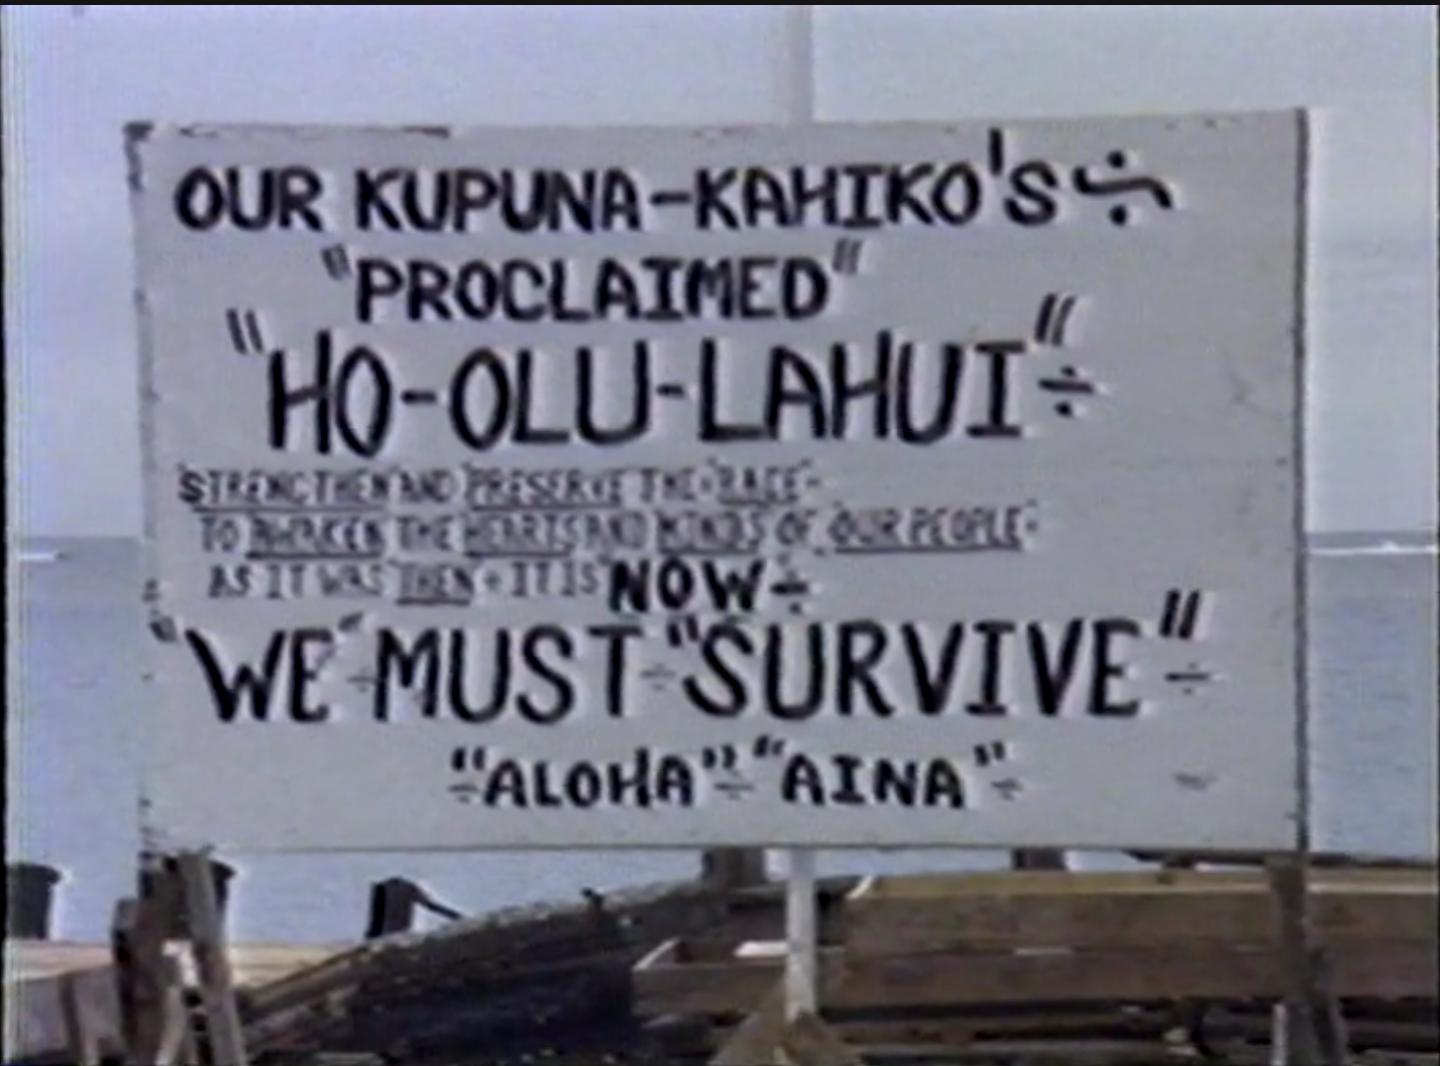 OUR KUPUNA-KAHIKO'S ÷
"PROCLAIMED"
"HO-OLU-LAHUI" ÷
"STRENGTHEN" AND "PRESERVE" THE "RACE"
TO "AWAKEN" THE "HEARTS AND MINDS" OF "OUR PEOPLE"
AS IT WAS "THEN" ÷ IT IS "NOW" ÷
"WE" ÷ MUST ÷ "SURVIVE" ÷
÷ "ALOHA" ÷ "AINA" ÷